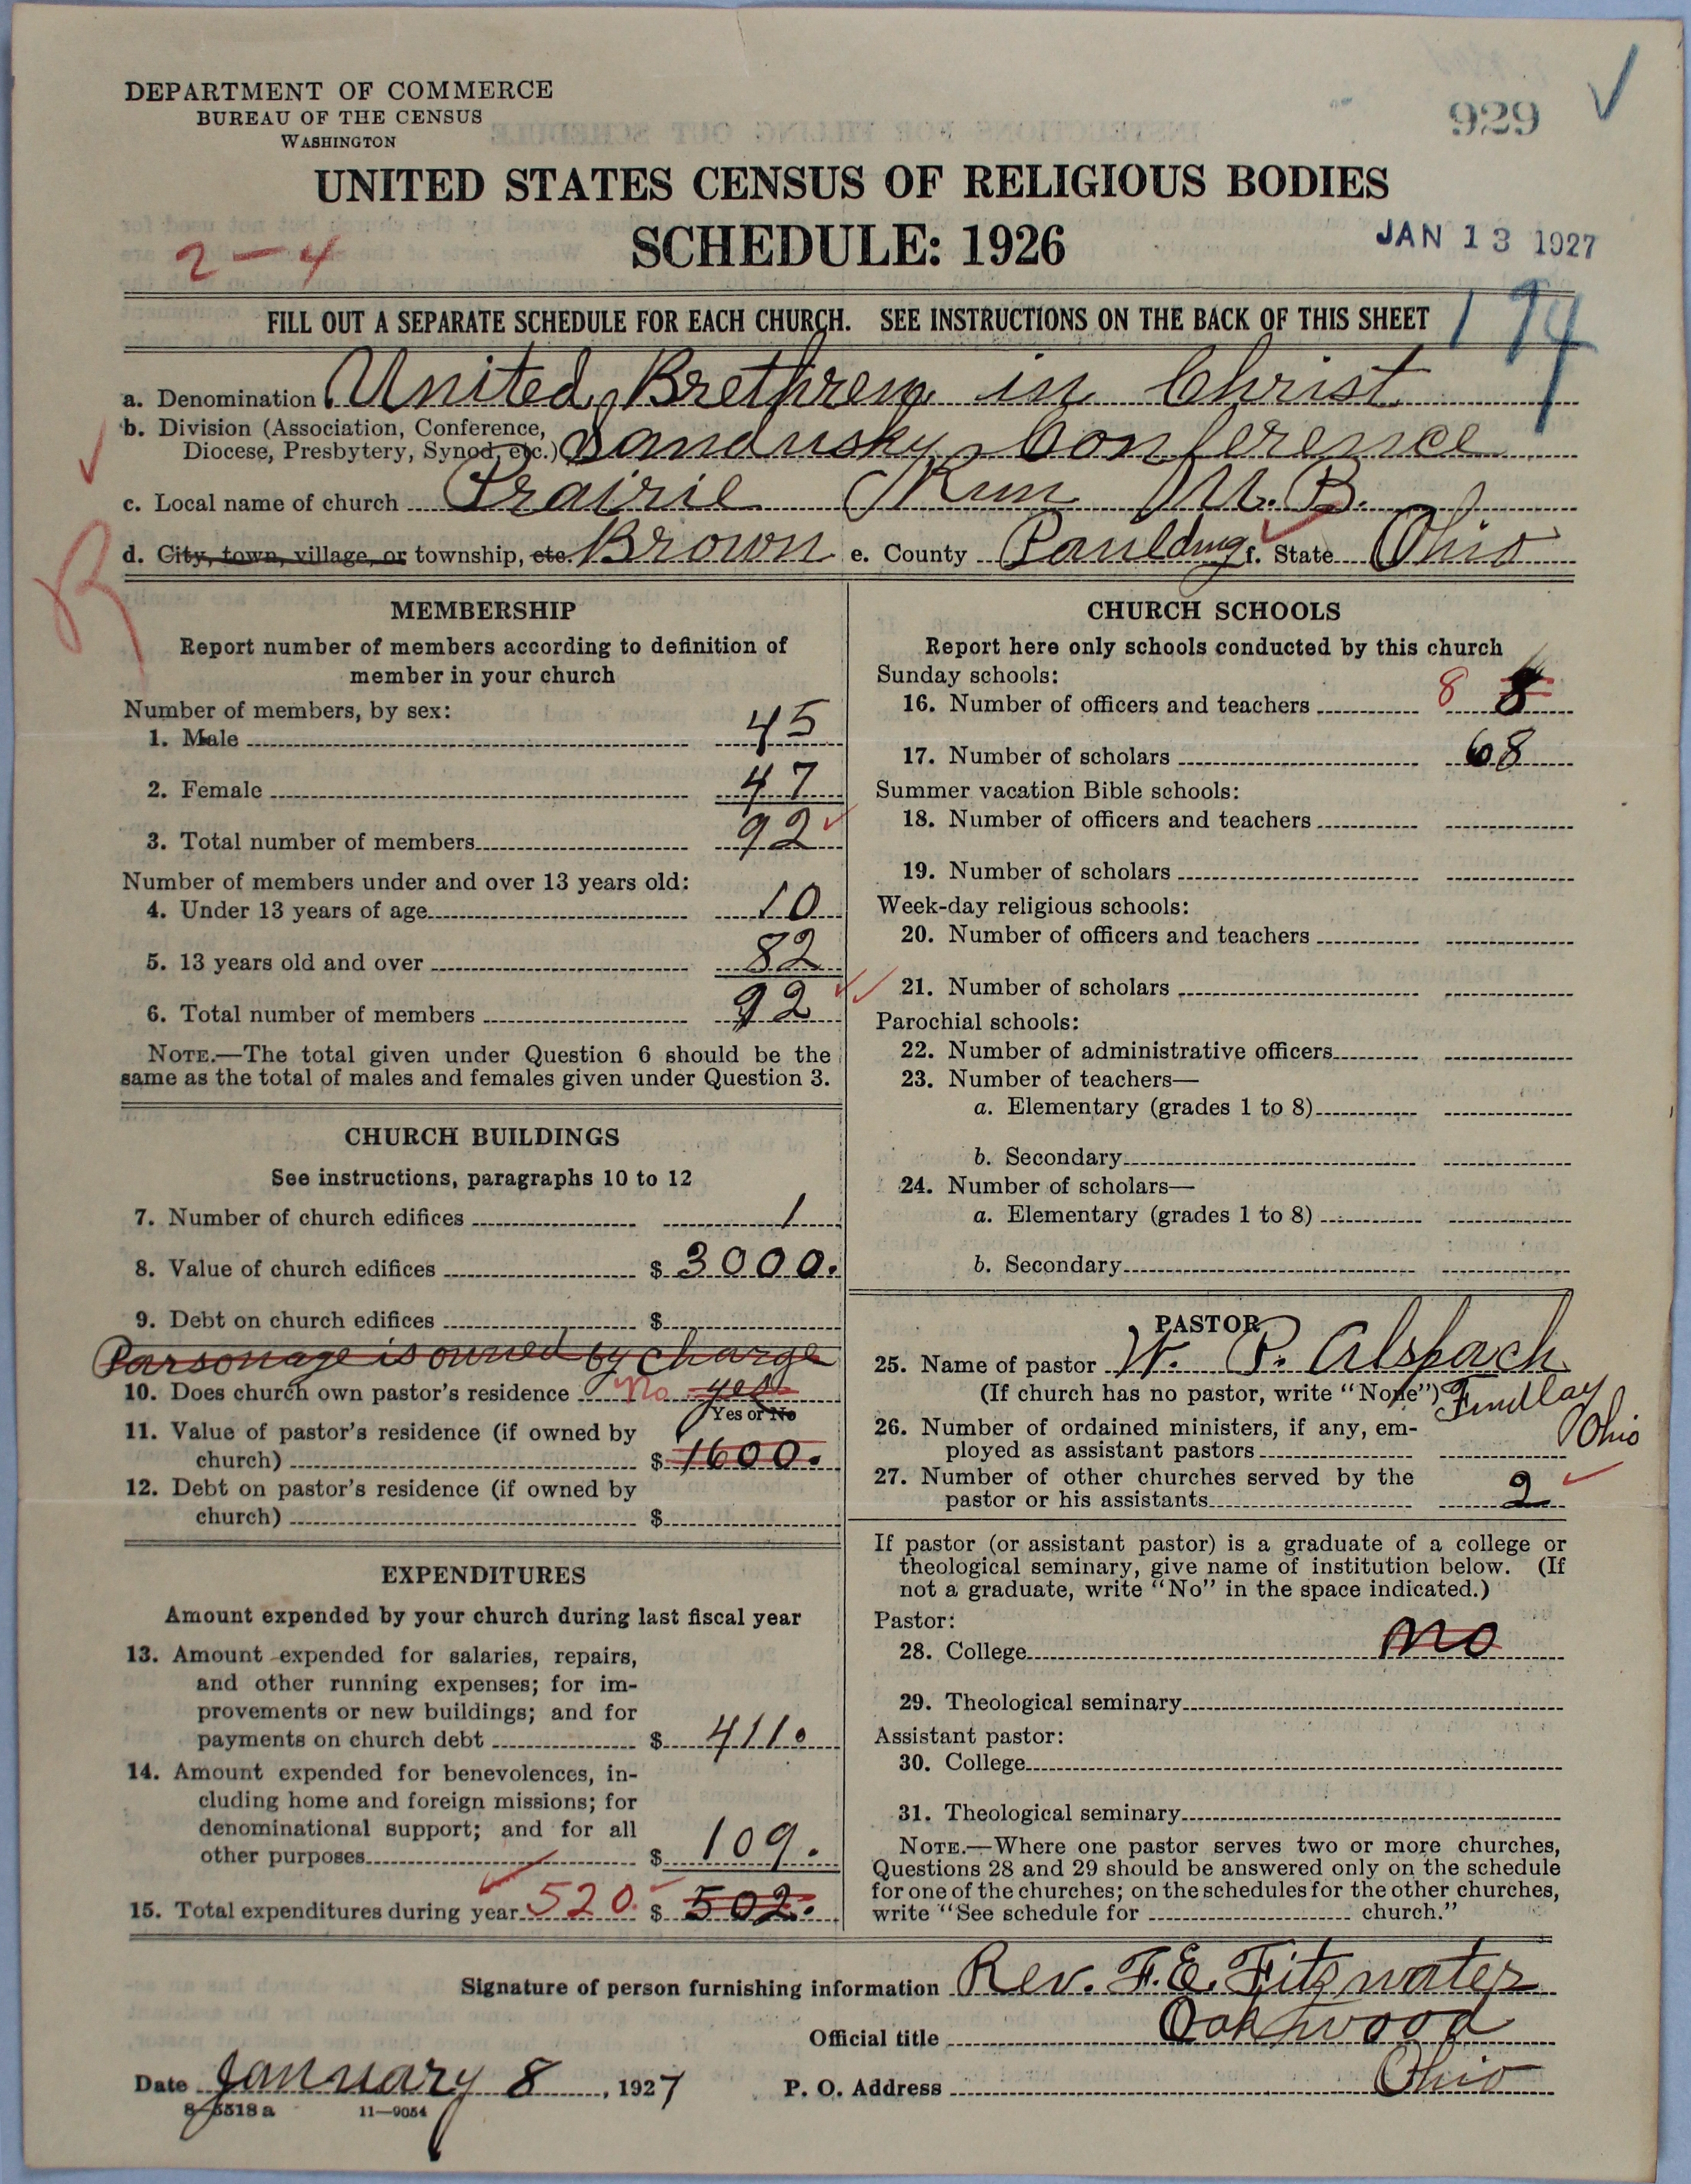 DEPARTMENT OF COMMERCE
BUREAU OF THE CENSUS
WASHINGTON
929
UNITED STATES CENSUS OF RELIGIOUS BODIES
2-4
SCHEDULE: 1926
JAN 13 1927
FILL OUT A SEPARATE SCHEDULE FOR EACH CHURCH. SEE INSTRUCTIONS ON THE BACK OF THIS SHEET
a. Denomination United Brethren in Christ
b. Division (Association, Conference,
Diocese, Presbytery, Synod, etc.) Sandusky Conference
c. Local name of church Prairie Run U.B.
d. City, town, village, or township, etc. Brown e. County Paulding f. State Ohio
R
MEMBERSHIP
Report number of members according to definition of
member in your church
Number of members, by sex:
1. Male 45
2. Female 47
3. Total number of members 92
Number of members under and over 13 years old:
4. Under 13 years of age 10
5. 13 years old and over 82
6. Total number of members 92
NOTE.—The total given under Question 6 should be the
same as the total of males and females given under Question 3.
CHURCH BUILDINGS
See instructions, paragraphs 10 to 12
7. Number of church edifices 1
8. Value of church edifices $ 3000.
9. Debt on church edifices $
Parsonage is owned by charge
10. Does church own pastor's residence No yes
Yes or No
11. Value of pastor's residence (if owned by
church) $ 1600.
12. Debt on pastor's residence (if owned by
church) $
EXPENDITURES
Amount expended by your church during last fiscal year
13. Amount expended for salaries, repairs,
and other running expenses; for im-
provements or new buildings; and for
payments on church debt $ 411.
14. Amount expended for benevolences, in-
cluding home and foreign missions; for
denominational support; and for all
other purposes $ 109.
15. Total expenditures during year 520. $ 502.
CHURCH SCHOOLS
Report here only schools conducted by this church
Sunday schools:
16. Number of officers and teachers 8 8
17. Number of scholars 68
Summer vacation Bible schools:
18. Number of officers and teachers
19. Number of scholars
Week-day religious schools:
20. Number of officers and teachers
21. Number of scholars
Parochial schools:
22. Number of administrative officers
23. Number of teachers—
a. Elementary (grades 1 to 8)
b. Secondary
24. Number of scholars—
a. Elementary (grades 1 to 8)
b. Secondary
PASTOR
25. Name of pastor W. P. Alspach
(If church has no pastor, write "None") Findlay
Ohio
26. Number of ordained ministers, if any, em-
ployed as assistant pastors
27. Number of other churches served by the
pastor or his assistants 2
If pastor (or assistant pastor) is a graduate of a college or
theological seminary, give name of institution below. (If
not a graduate, write "No" in the space indicated.)
Pastor:
28. College no
29. Theological seminary
Assistant pastor:
30. College
31. Theological seminary
NOTE.—Where one pastor serves two or more churches,
Questions 28 and 29 should be answered only on the schedule
for one of the churches; on the schedules for the other churches,
write "See schedule for church."
Signature of person furnishing information Rev. F. E. Fitzwater
Official title Oakwood
Date January 8, 1927 P. O. Address Ohio
8-5518 a 11—9054